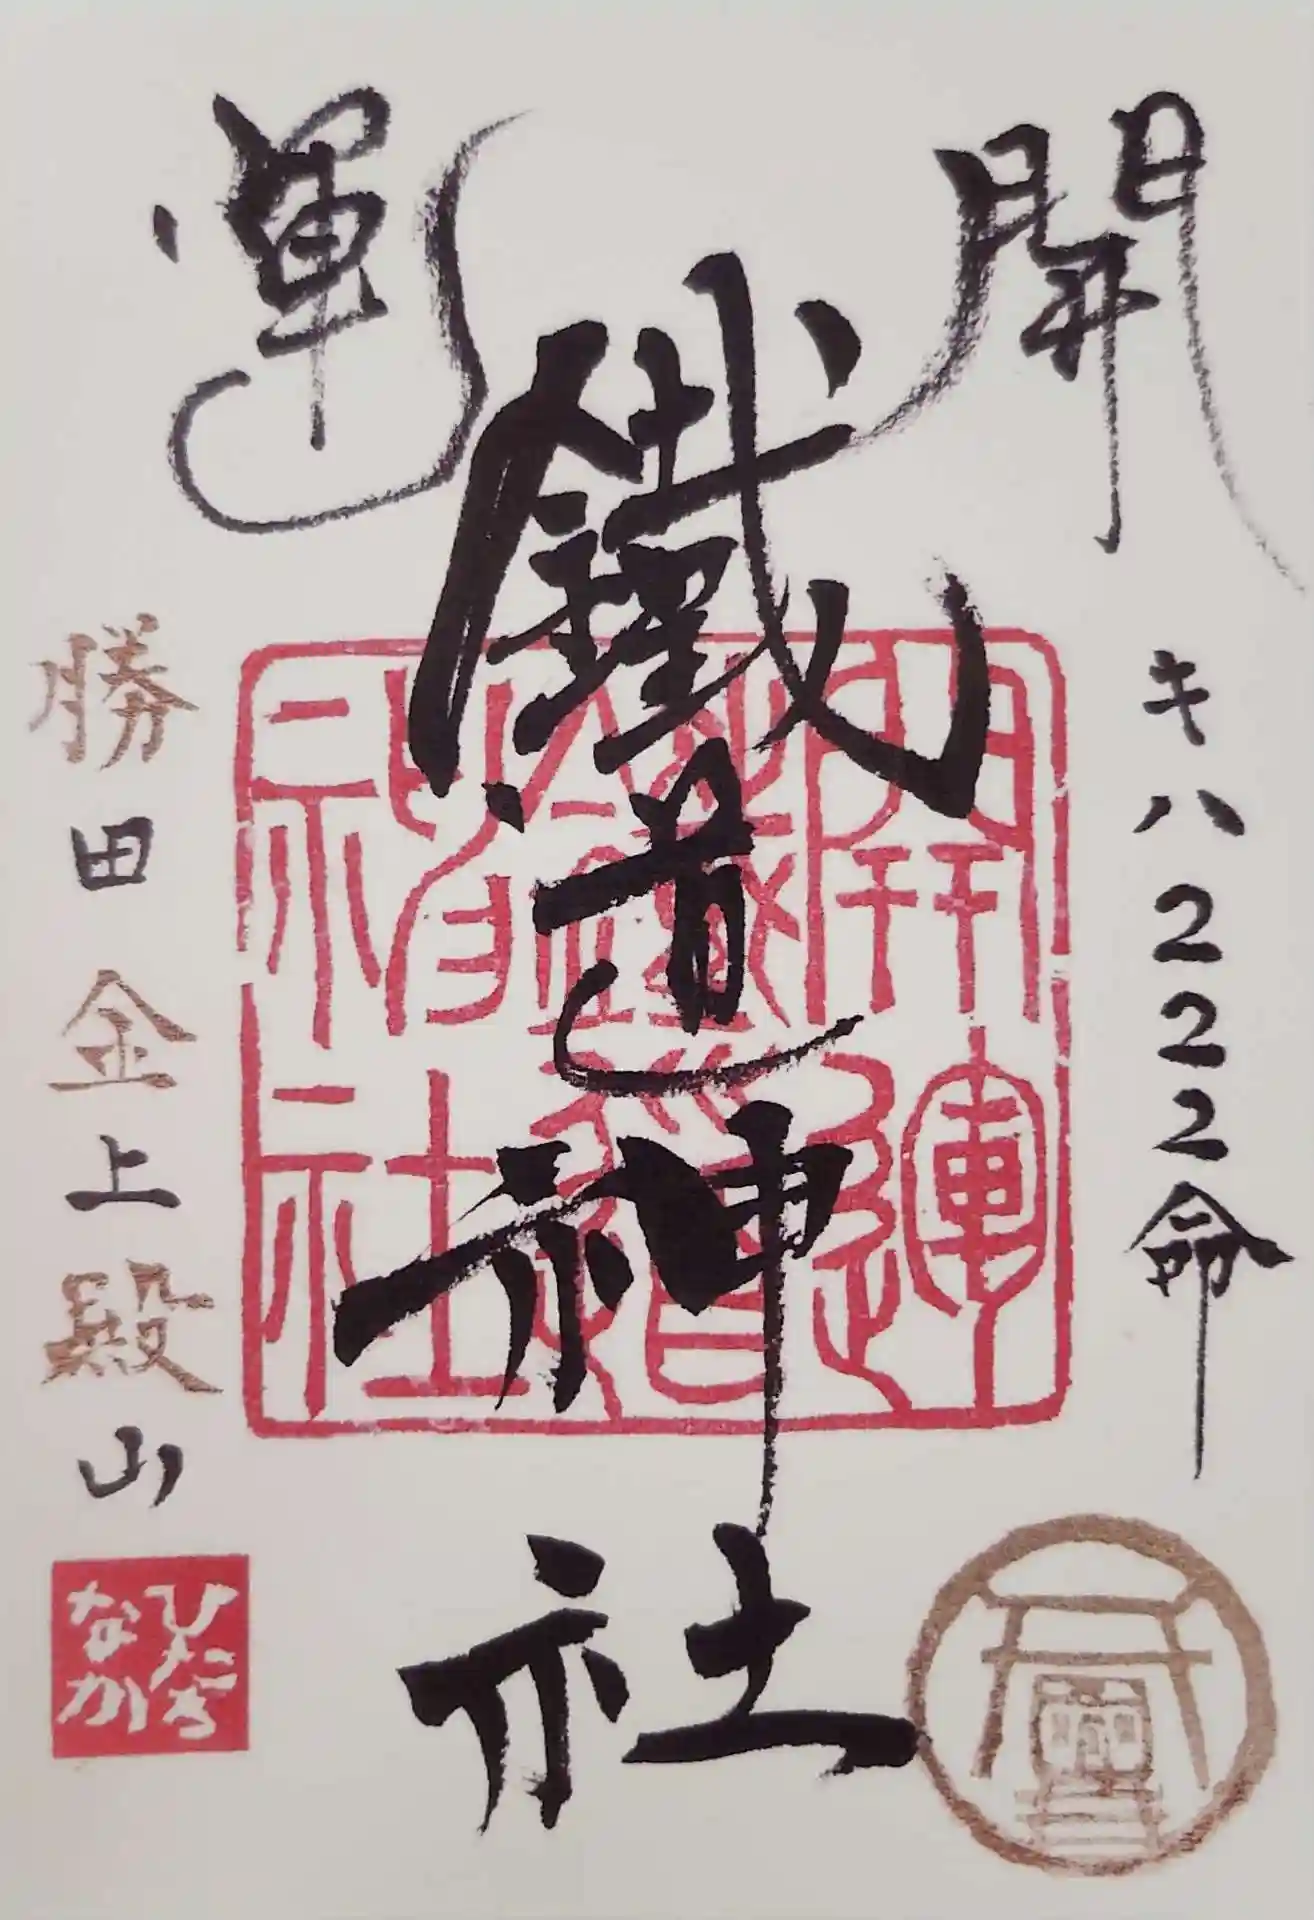 開運
キハ222命
鐵道神社
勝田金上殿山
開運
鐵道
神社
ひたち
なか